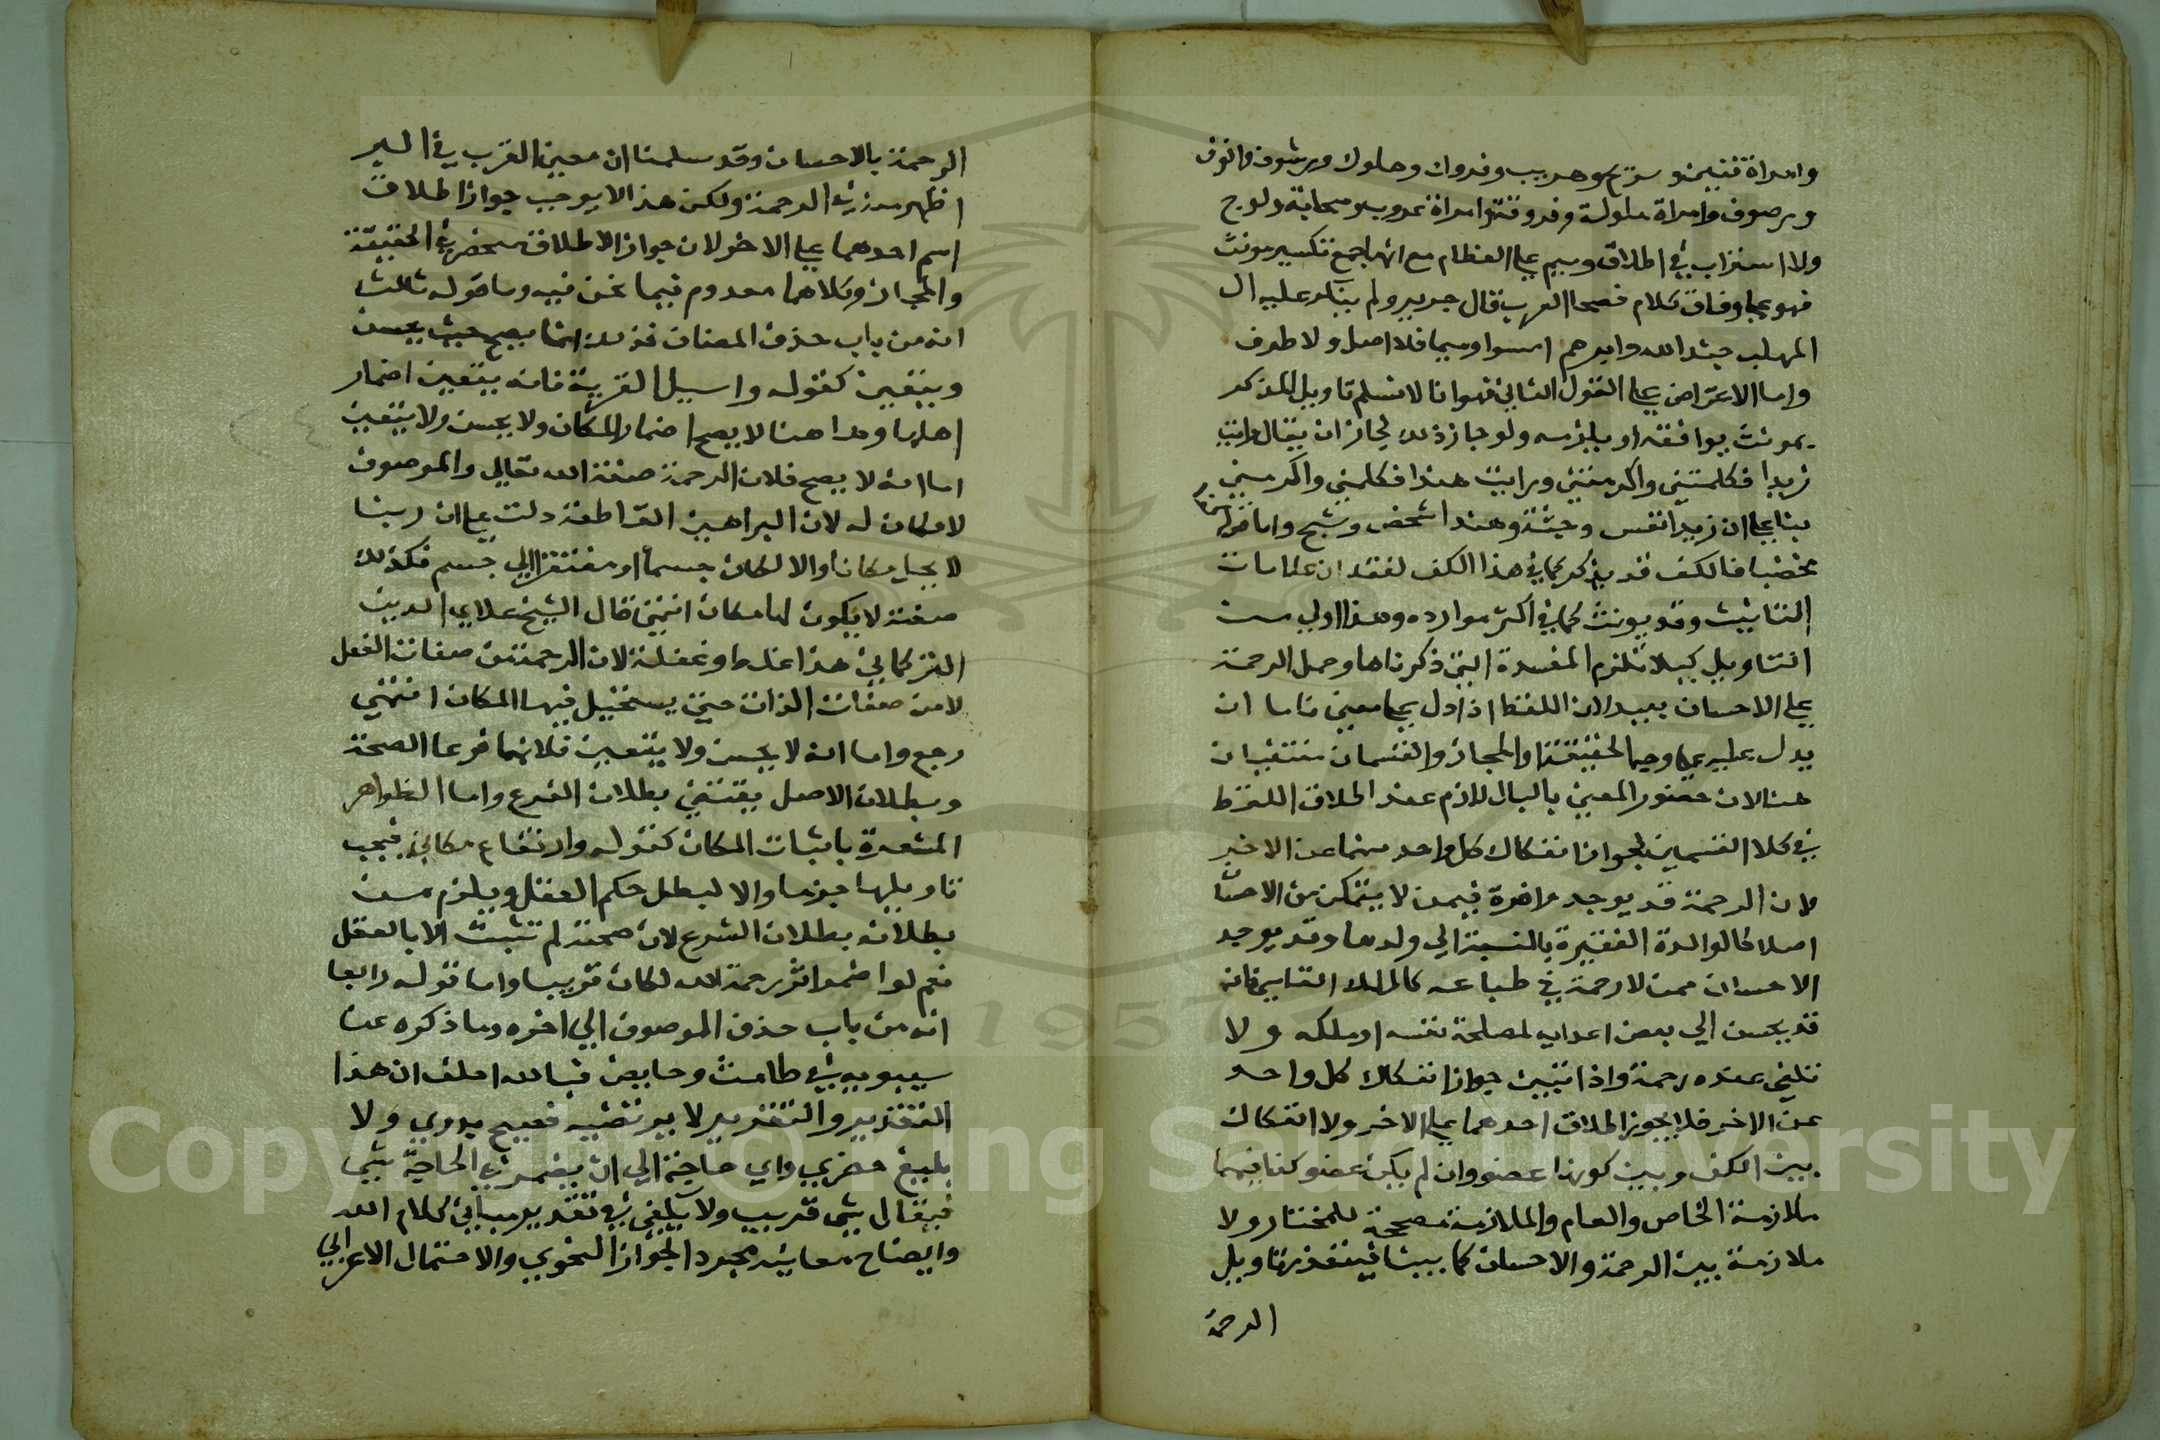 وامراة قتيل و سريح وهريب وفروك وهلوك ورشوف وانوف
ورصوف وامراة ملولة وفروقة وامراة عروب وسحابة دلوح
ولا استغراب في اطلاق رميم على العظام مع انها جمع تكسير مونث
فهو على وفاق كلام فصحا العرب قال جرير ولم ينكر عليه ال
المهلب جذ الله دابرهم امسوا رميما فلا اصل ولا طرف
واما الاعتراض على القول الثاني فهو انا لا نسلم تاويل المذكر
بمونث يوافقه او يلزمه ولو جاز ذلك لجاز ان يقال رايت
زيدا فكلمتني واكرمتني ورايت هندا فكلمني واكرمني
بنا على ان زيدا نفس وجثة وهندا شخص وشبح واما قوله كفا
مخضبا فالكف قد يذكر كما في هذا الكف لفقدان علامات
التانيث وقد يونث كما في اكثر موارده وهذا اولى من
التاويل كيلا تلزم المفسدة التي ذكرناها وحمل الرحمة
على الاحسان بعيد لان اللفظ اذا دل على معنى فاما ان
يدل عليه على وجه الحقيقة او المجاز والقسمان منتفيان
هنا لان حضور المعنى بالبال لازم عند اطلاق اللفظ
في كلا القسمين لجواز انفكاك كل واحد منهما عن الاخر
لان الرحمة قد يوجد وافرة فيمن لا يتمكن من الاحسان
اصلا كالوالدة الفقيرة بالنسبة الي ولدها وقد يوجد
الاحسان ممن لا رحمة في طباعه كالملك القاسي فانه
قد يحسن الي بعض اعدايه لمصلحة نفسه او ملكه ولا
تلفي عنده رحمة واذا تبين جواز انفكاك كل واحد
عن الاخر فلا يجوز اطلاق احدهما على الاخر ولا انفكاك
بين الكف وبين كونها عضو وان لم يكن عضو كفا فبينهما
ملازمة الخاص والعام والملازمة مصححة للمختار ولا
ملازمة بين الرحمة والاحسان كما بينا فينفذ تاويل
الرحمة
الرحمة بالاحسان وقد سلمنا ان معنى القرب في البر
اظهر منه في الرحمة ولكن هذا لا يوجب جواز اطلاق
اسم احدهما على الاخر لان جواز الاطلاق منحصر في الحقيقة
والمجاز وكلاهما معدوم فيما نحن فيه وما قوله ثالث
انه من باب حذف المضاف فذلك انما يصح حيث يحسن
ويتعين كقوله واسيل القرية فانه يتعين اضمار
اهلها وهاهنا لا يصح اضمار المكان ولا يحسن ولا يتعين
اما انه لا يصح فلان الرحمة صفة الله تعالي والموصوف
لا مكان له لان البراهين القاطعة دلت على ان ربنا
لا يحل مكانا والا لكان جسما او مفتقرا الي جسم فكذلك
صفته لا يكون لها مكان انتهي قال الشيخ علاي الدين
التركماني هذا غلط وغفلة لان الرحمة من صفات الفعل
لا من صفات الذات حتى يستحيل فيها المكان انتهي
رجع واما انه لا يحسن ولا يتعين فلانهما فرعا الصحة
وبطلان الاصل يقتضي بطلان الفرع واما الظواهر
المشعرة باثبات المكان كقوله وارتفاع مكاني فيجب
تاويلها جزما والا لبطل حكم العقل ويلزم من
بطلانه بطلان الشرع لان صحته لم تثبت الا بالعقل
نعم لو اضمر اثر رحمة الله لكان قريبا واما قوله رابعا
انه من باب حذف الموصوف الي اخره وما ذكره عن
سيبويه في طامث وحايض فبالله احلف ان هذا
التقدير والتقدير لا يرتضيه فصيح بدوي ولا
بليغ حضري واي حاجة الي ان يضمر في الحاجة شي
فيقال شي قريب ولا يكفي في تقدير مباني كلام الله
وايضاح معانيه مجرد الجواز النحوي والاحتمال الاعرابي
Copyright © King Saud University
1957